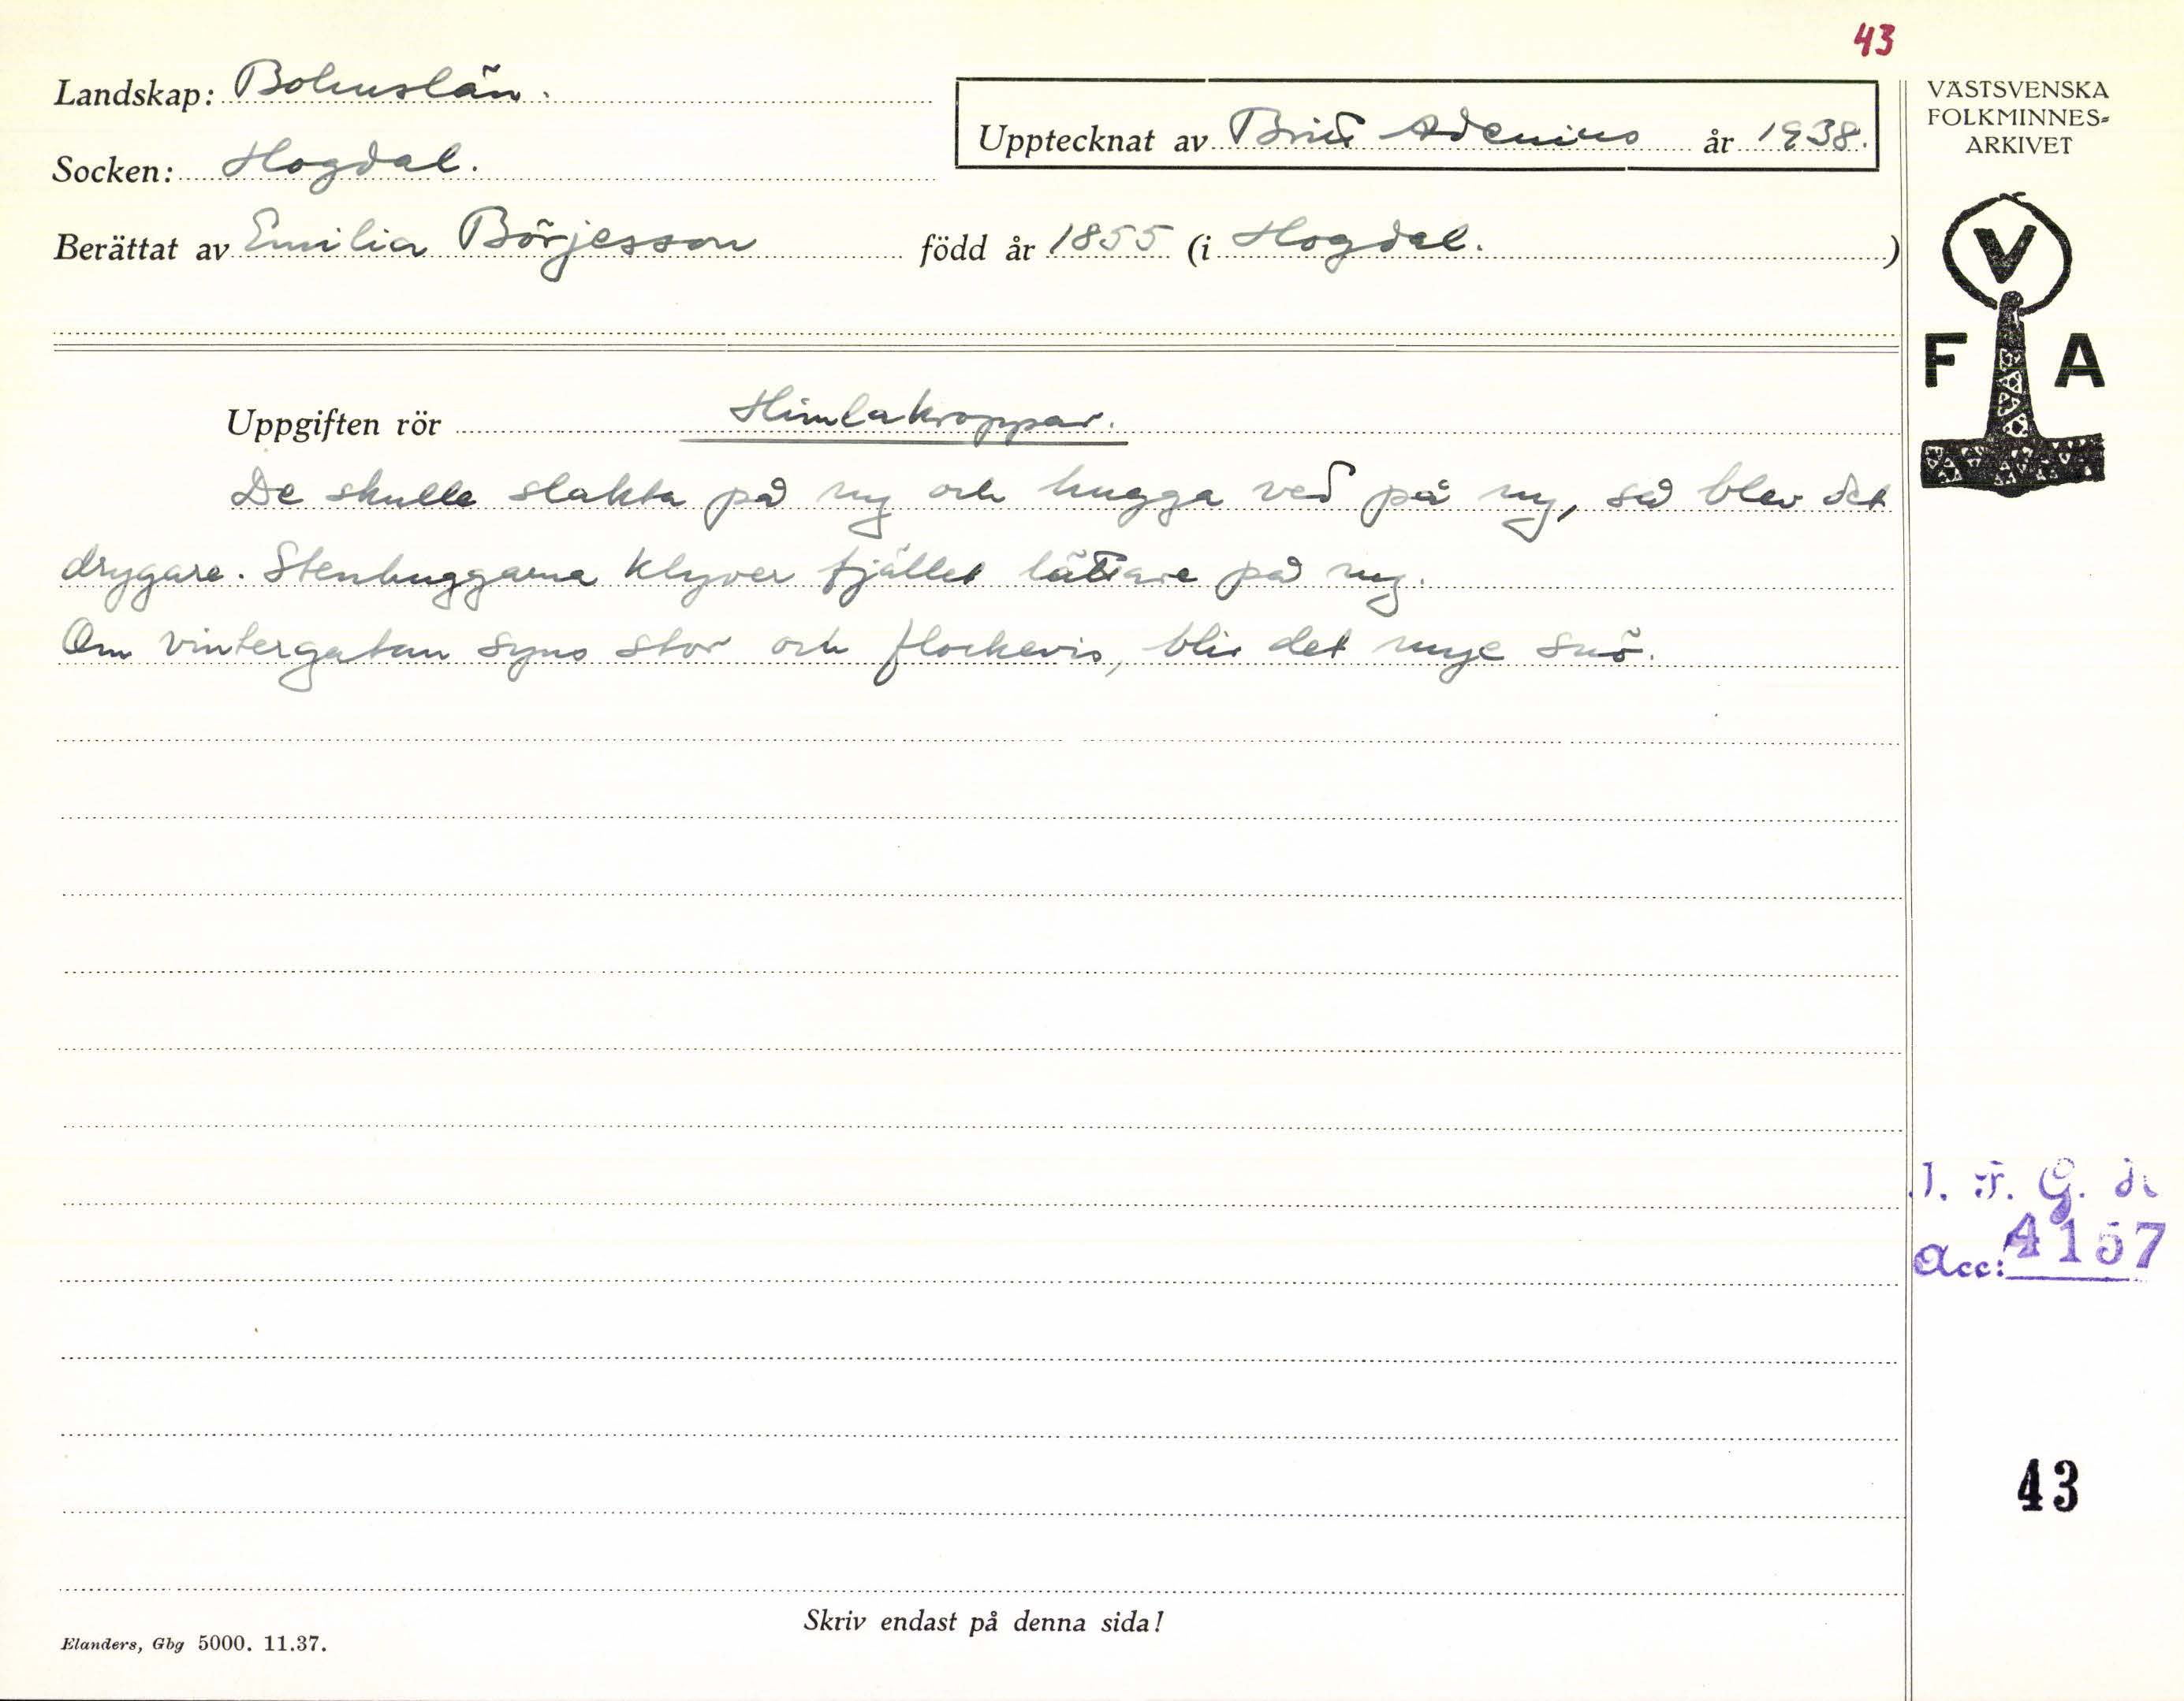 43
Landskap: Bohuslän.
Socken: Hogdal.
Upptecknat av Britt Adenius år 1938.
Berättat av Emilia Börjesson född år 1855 (i Hogdal. )
VÄSTSVENSKA
FOLKMINNES=
ARKIVET
V
F A
Uppgiften rör Himlakroppar.
De skulle slakta på ny och hugga ved på ny, så blev det
drygare. Stenhuggarna klyver fjället lättare på ny.
Om vintergatan syns stor och flockevis, blir det mye snö.
I. F. G.
Acc: 4157
43
Skriv endast på denna sida!
Elanders, Gbg 5000. 11.37.